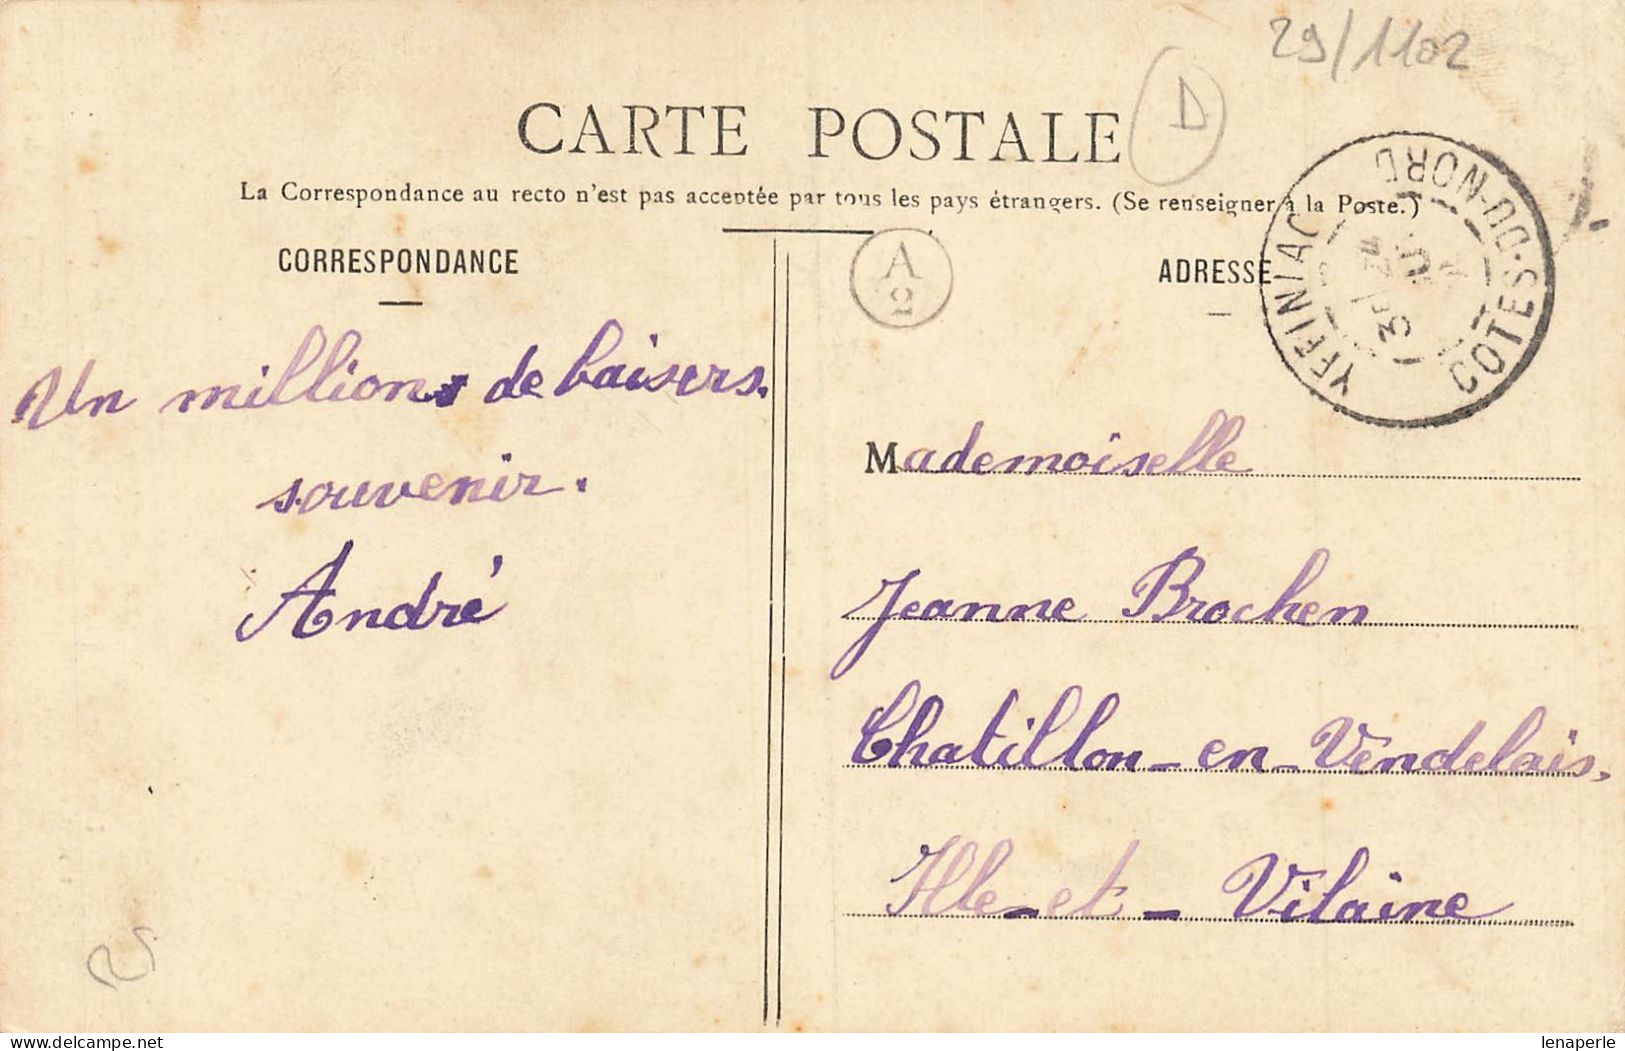 29/1102
D
CARTE POSTALE
La Correspondance au recto n'est pas acceptée par tous les pays étrangers. (Se renseigner à la Poste.)
CORRESPONDANCE
A
2
ADRESSE
YFFINIAC
COTES-DU-NORD
Un million de baisers.
souvenir.
André
Mademoiselle
Jeanne Brochen
Chatillon-en-Vendelais.
Ille-et-Vilaine
lenaperle